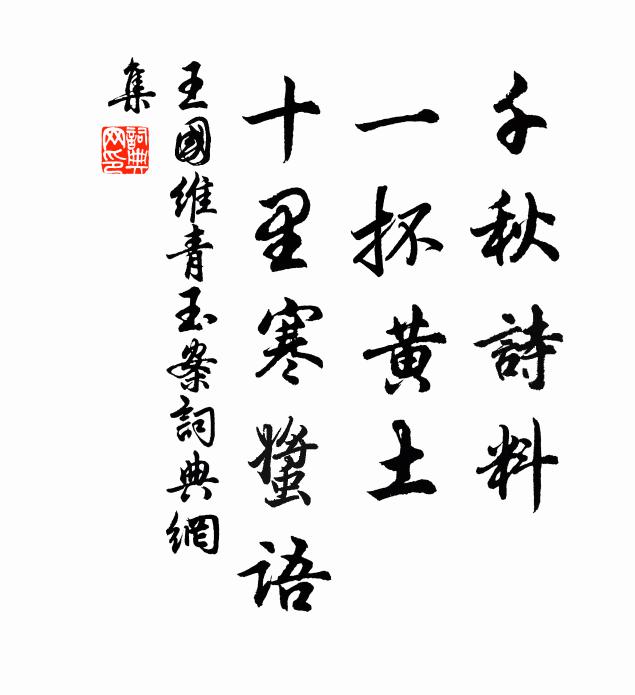 千秋詩料
一抔黃土
十里寒螿語
王國維青玉案詞典網
集
詞典網印